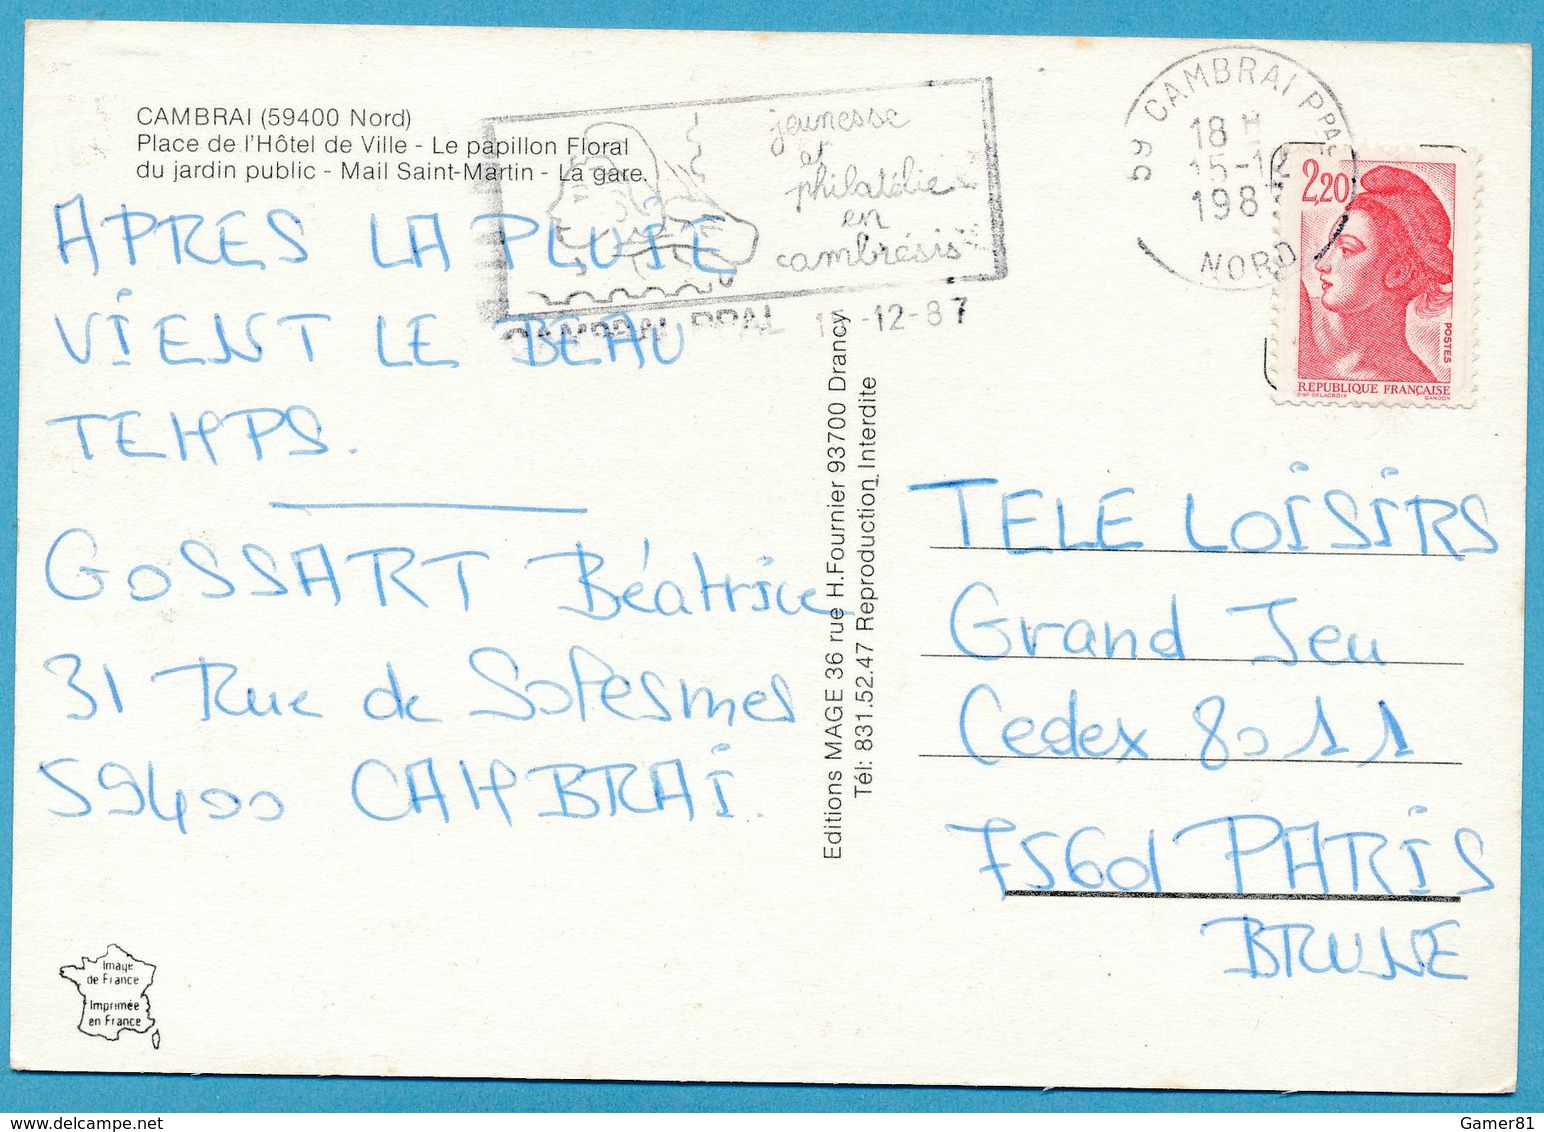 CAMBRAI (59400 Nord)
Place de l'Hôtel de Ville - Le papillon Floral
du jardin public - Mail Saint-Martin - La gare.
APRES LA PLUIE
VIENT LE BEAU
TEMPS.
GOSSART Béatrice
31 Rue de Solesmes
59400 CAMBRAI.
Image
de France
Imprimée
en France
jeunesse
et
philatélie
en
cambrésis
CAMBRAI PPAL -12-87
Editions MAGE 36 rue H.Fournier 93700 Drancy
Tél: 831.52.47 Reproduction Interdite
59 CAMBRAI PPAL
18 H
15-12
198
NORD
2,20
POSTES
REPUBLIQUE FRANÇAISE
D'AP. DELACROIX GANDON
TELE LOISIRS
Grand Jeu
Cedex 8011
75601 PARIS
BRUNE
delcampe.net
Gamer81